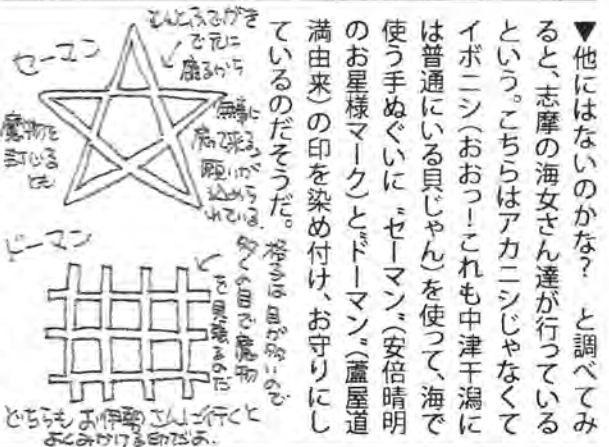 ▼他にはないのかな？　と調べてみ
ると、志摩の海女さん達が行っている
という。こちらはアカニシじゃなくて
イボニシ（おおっ！これも中津干潟に
は普通にいる貝じゃん）を使って、海で
使う手ぬぐいに〝セーマン〟（安倍晴明
のお星様マーク）と〝ドーマン〟（蘆屋道
満由来）の印を染め付け、お守りにし
ているのだそうだ。
セーマン
ひとふでがき
で元に
戻るから
無事に
戻って来る、
願いが
込めら
れている。
魔物を
封じる
とも
ドーマン
格子は目が多いので
多くの目で魔物
を見張るのだ
どちらもお伊勢さんに行くと
よくみかける印だよ。